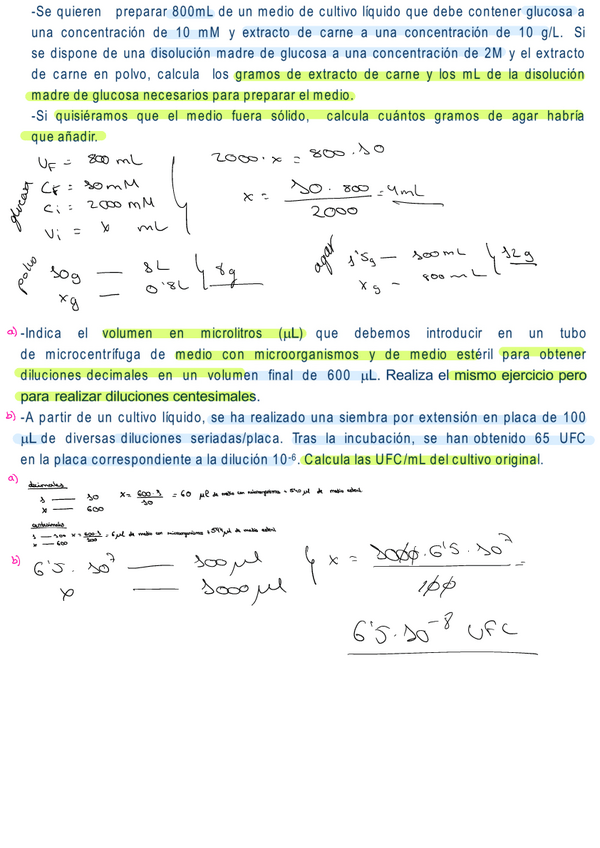 -Se quieren preparar 800mL de un medio de cultivo líquido que debe contener glucosa a
una concentración de 10 mM y extracto de carne a una concentración de 10 g/L. Si
se dispone de una disolución madre de glucosa a una concentración de 2M y el extracto
de carne en polvo, calcula los gramos de extracto de carne y los mL de la disolución
madre de glucosa necesarios para preparar el medio.
-Si quisiéramos que el medio fuera sólido, calcula cuántos gramos de agar habría
que añadir.
glucosa
VF = 800 mL
CF = 10mM
Ci = 2000 mM
Vi = x mL
2000·x = 800·10
x = 10 · 800 / 2000 = 4mL
polvo
10g — 1L
xg — 0'8L
8g
agar
1'5g — 100mL
xg — 800mL
12g
a) -Indica el volumen en microlitros (µL) que debemos introducir en un tubo
de microcentrífuga de medio con microorganismos y de medio estéril para obtener
diluciones decimales en un volumen final de 600 µL. Realiza el mismo ejercicio pero
para realizar diluciones centesimales.
b) -A partir de un cultivo líquido, se ha realizado una siembra por extensión en placa de 100
µL de diversas diluciones seriadas/placa. Tras la incubación, se han obtenido 65 UFC
en la placa correspondiente a la dilución 10-6. Calcula las UFC/mL del cultivo original.
a)
decimales
1 — 10
x — 600
x = 600·1 / 10 = 60 µL de medio con microorganismos + 540 µL de medio estéril
centesimales
1 — 100
x — 600
x = 600·1 / 100 = 6 µL de medio con microorganismos + 594 µL de medio estéril
b)
6'5·10^7 — 100 µl
x — 1000 µl
x = 1000·6'5·10^7 / 100 =
6'5·10^-8 UFC